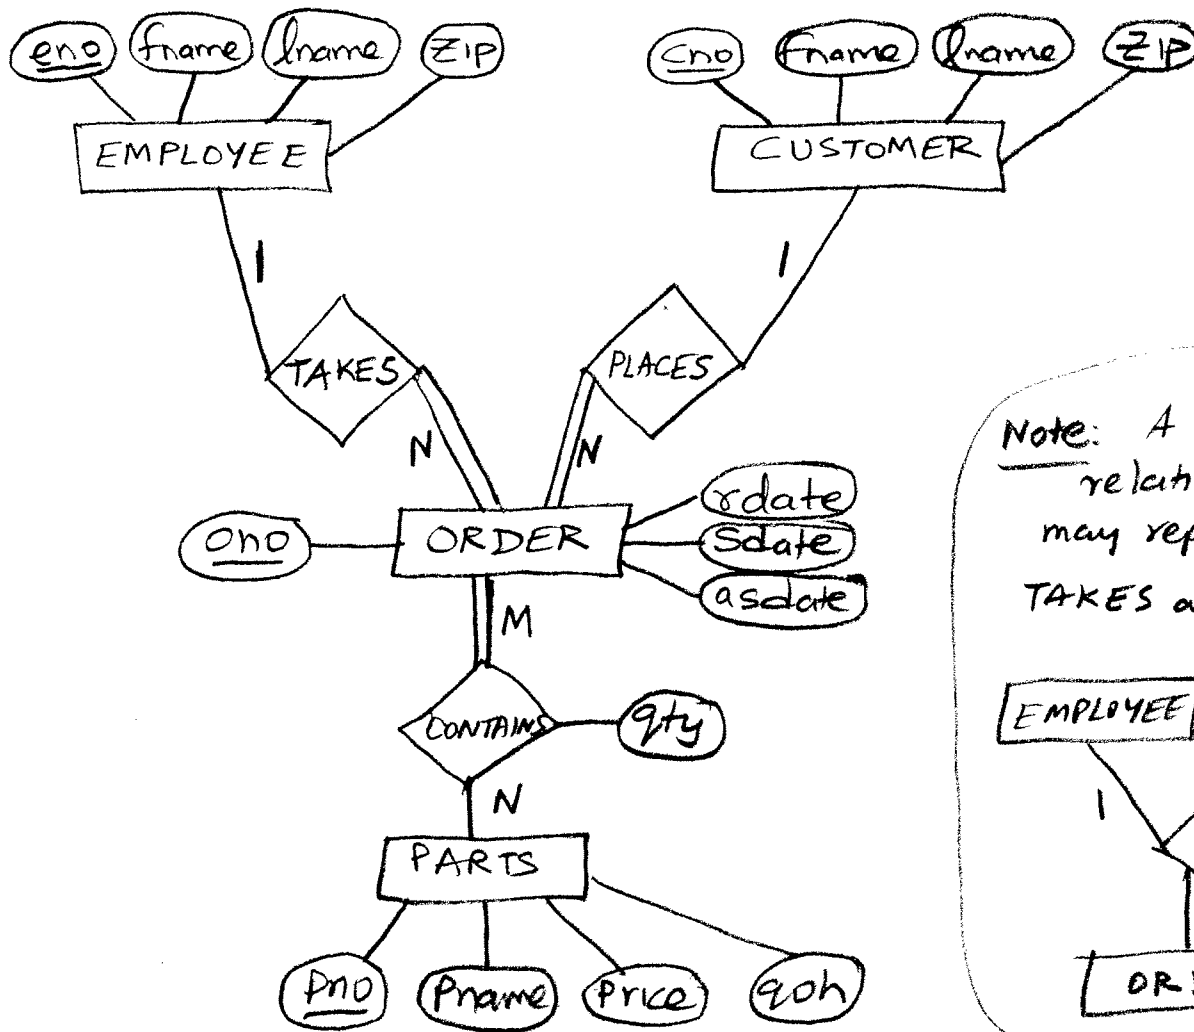 eno fname lname zip
cno Fname lname Zip
EMPLOYEE
CUSTOMER
1
1
TAKES
PLACES
N
N
ono
ORDER
rdate
Sdate
asdate
M
CONTAINS
qty
N
PARTS
Pno Pname Price qoh
Note: A
may
TAKES
EMPLOYEE
1